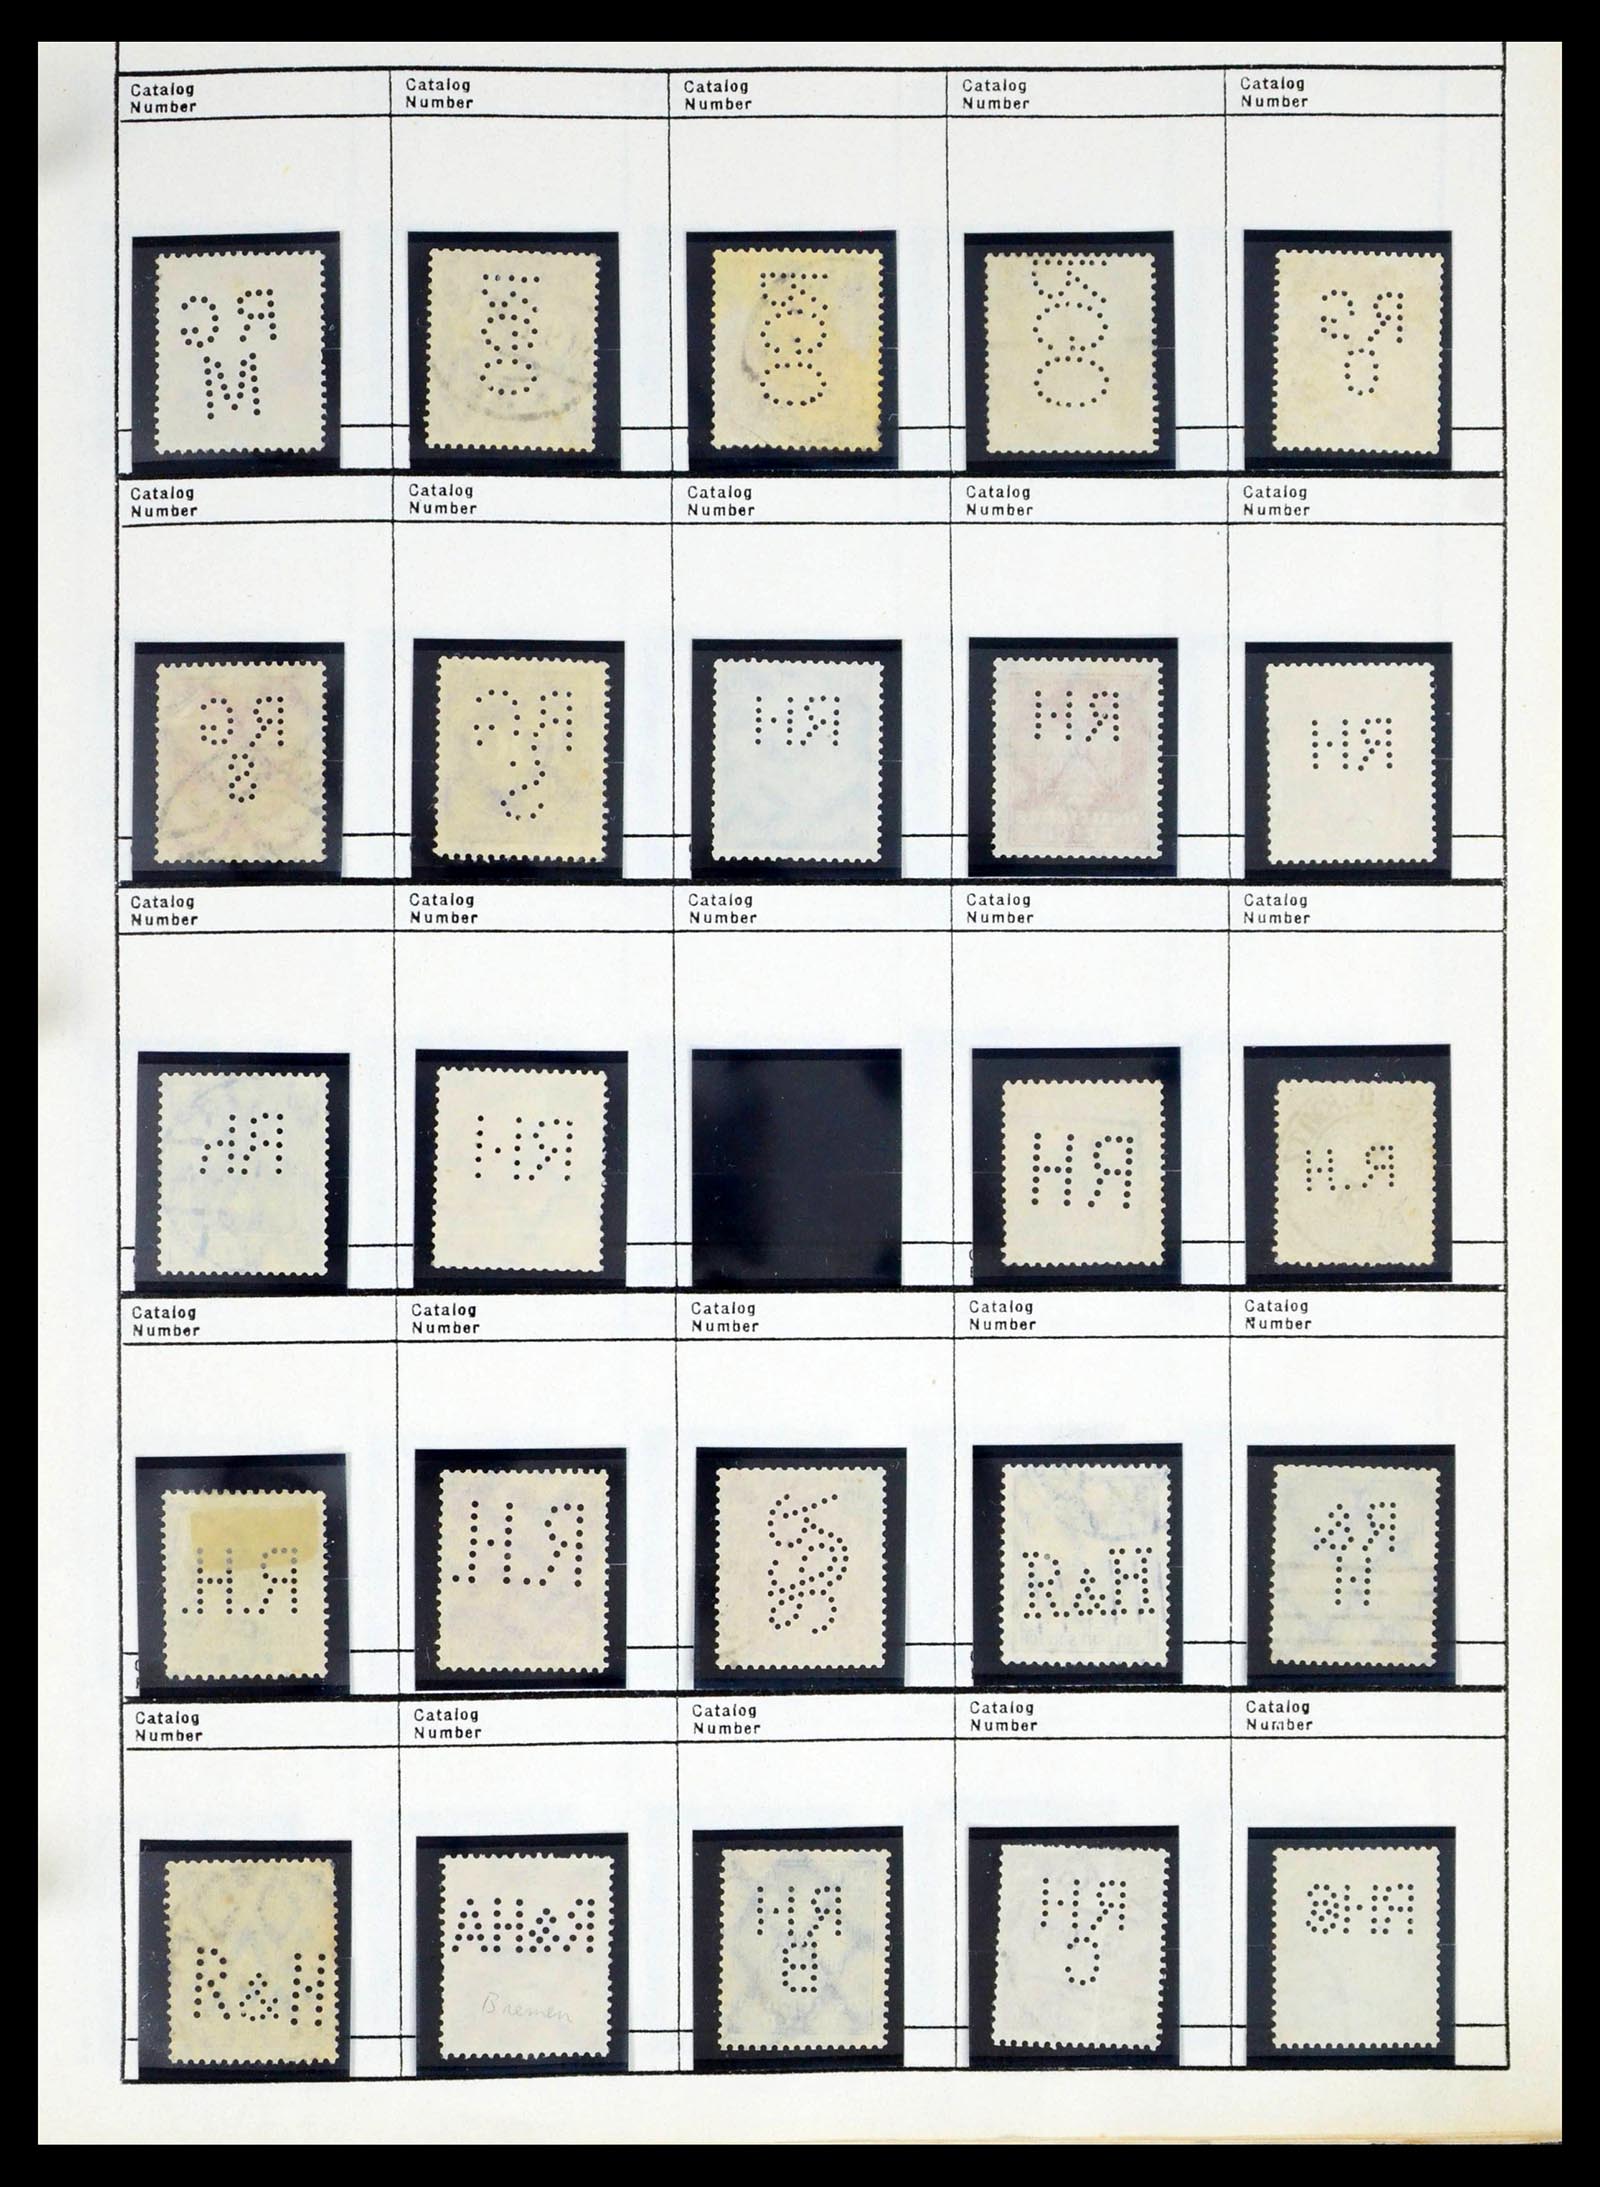 Catalog Number Catalog Number Catalog Number Catalog Number Catalog Number
RG M
RG O
Catalog Number Catalog Number Catalog Number Catalog Number Catalog Number
RG S
RG S
RH
RH
RH
Catalog Number Catalog Number Catalog Number Catalog Number Catalog Number
Rh
RH
RH
R.H
Catalog Number Catalog Number Catalog Number Catalog Number Catalog Number
R.H.
R.H.
R&H
R& H
Catalog Number Catalog Number Catalog Number Catalog Number Catalog Number
R&H
R&HA
Bremen
RH B
RH C